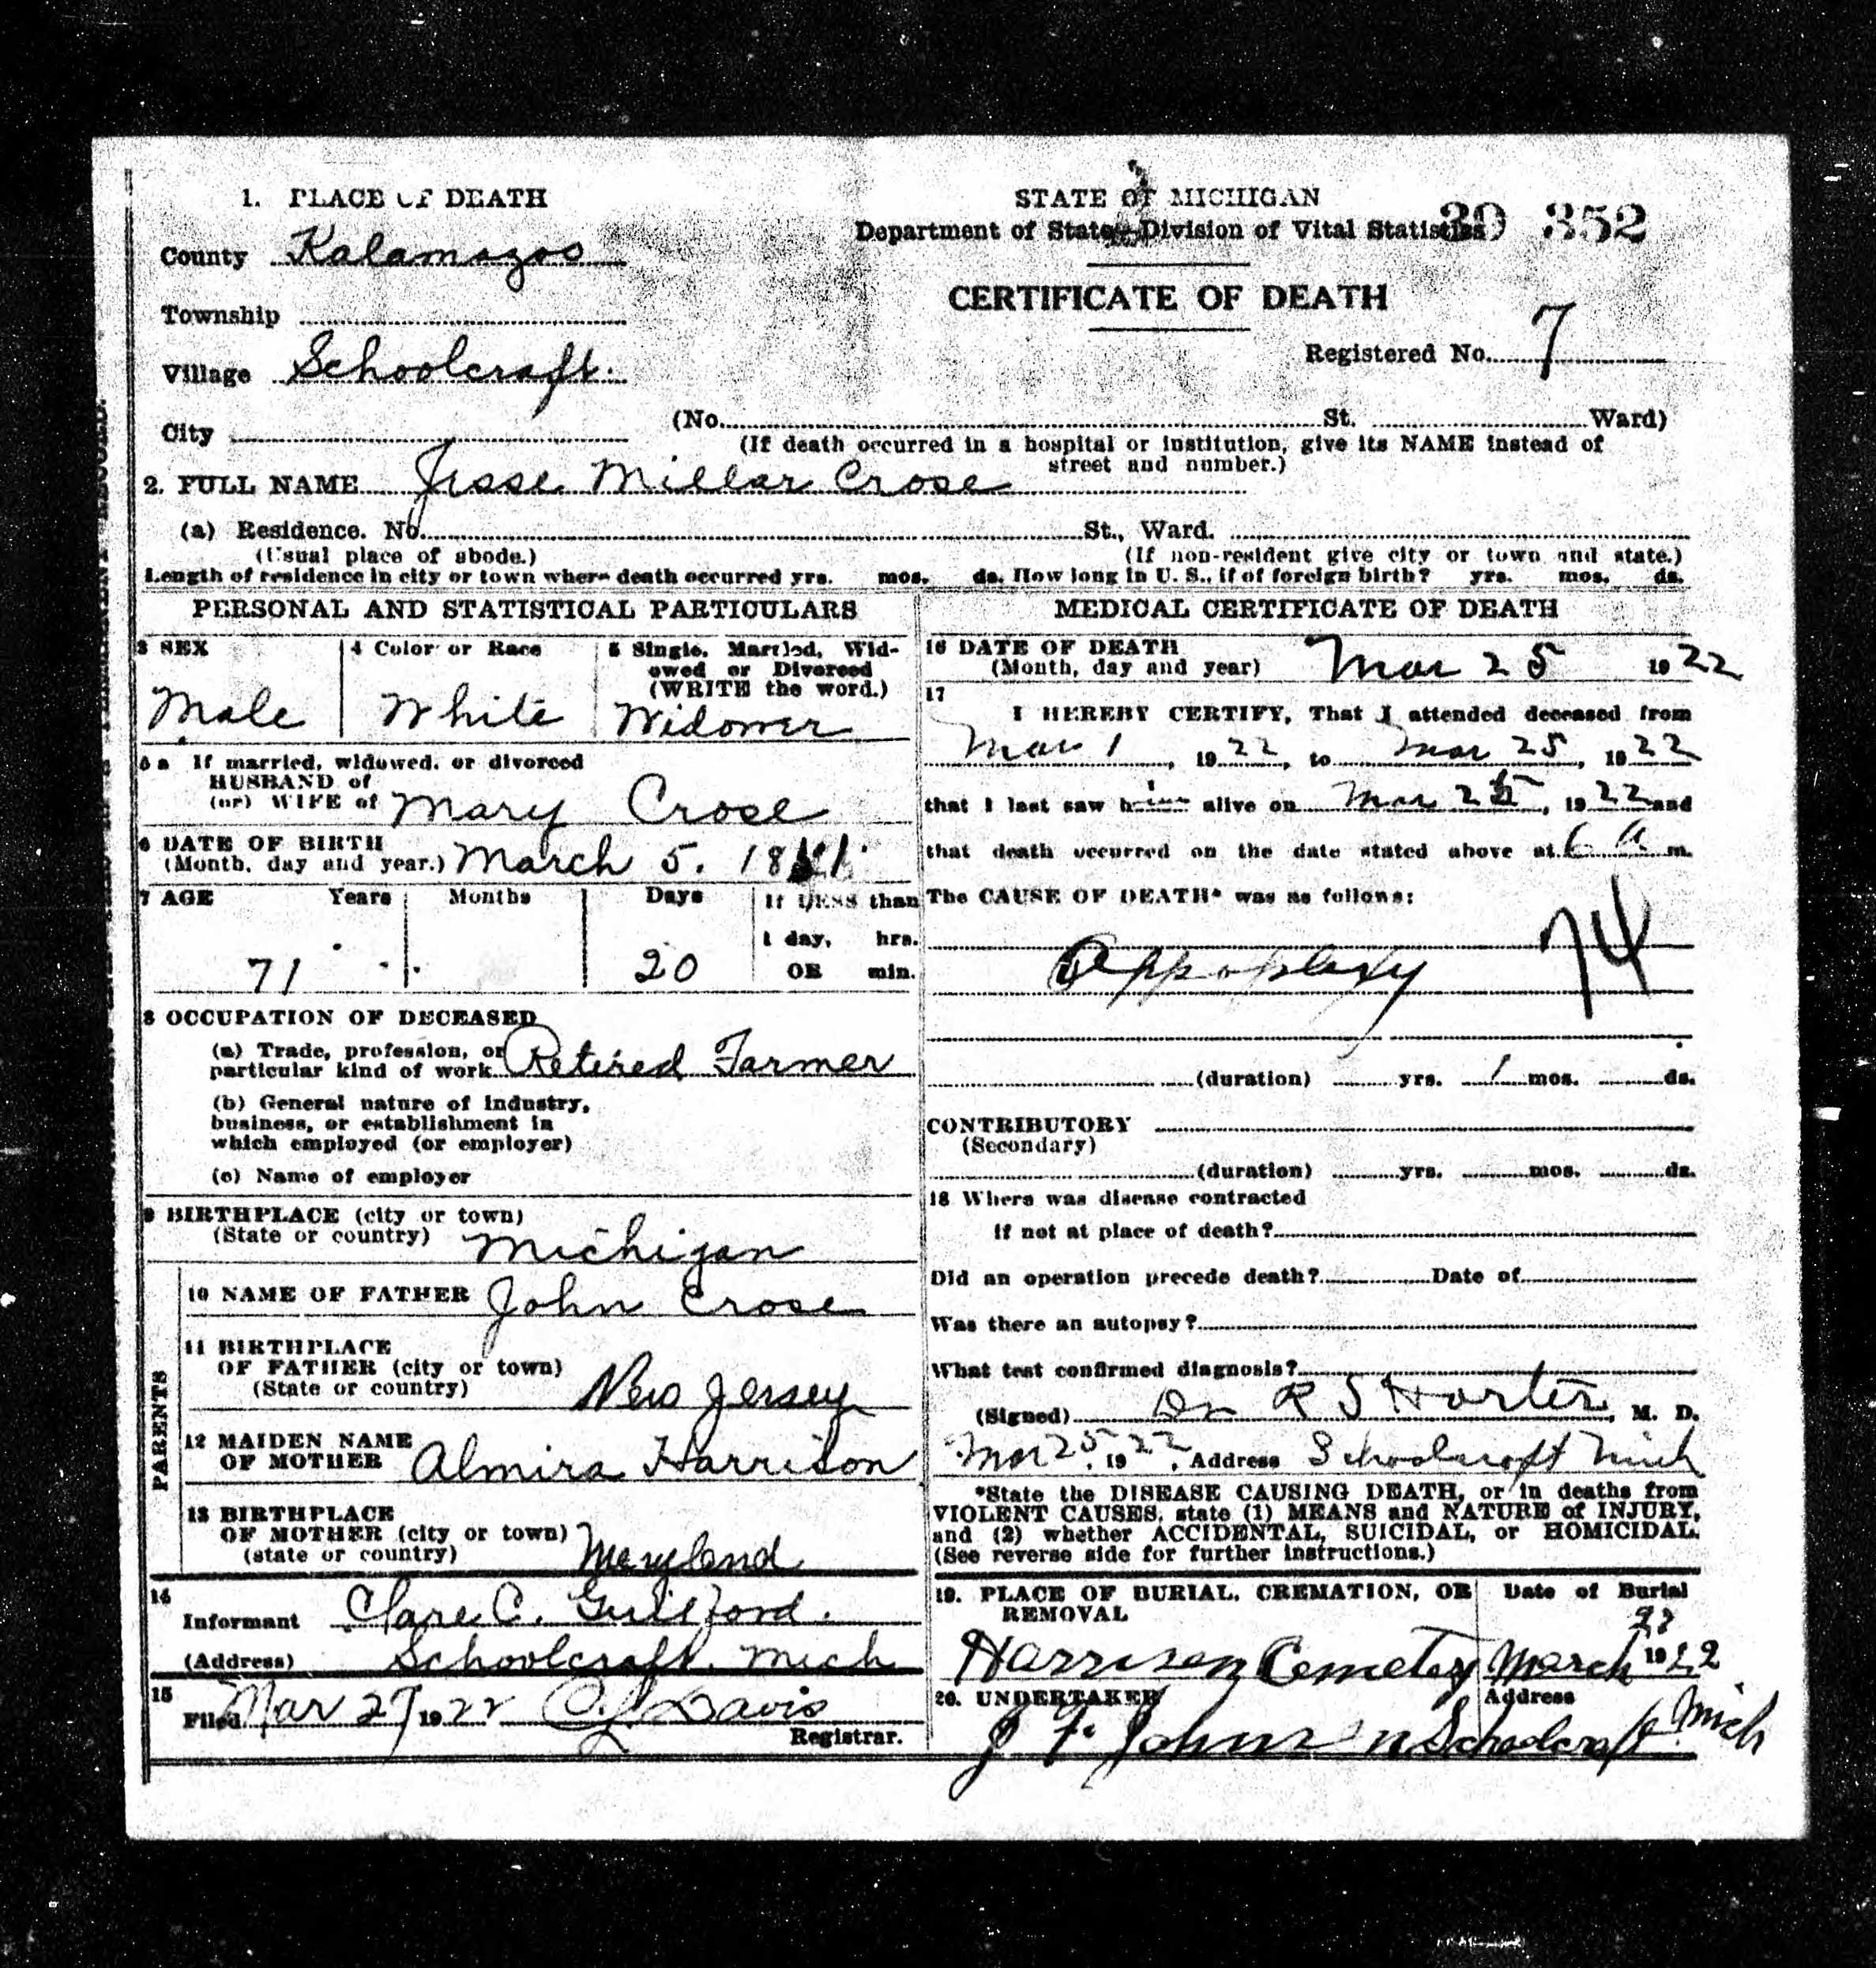 1. PLACE OF DEATH
County Kalamazoo
Township
Village Schoolcraft.
City
STATE OF MICHIGAN
Department of State—Division of Vital Statistics
39 352
CERTIFICATE OF DEATH
Registered No. 7
(No. St. Ward)
(If death occurred in a hospital or institution, give its NAME instead of
street and number.)
2. FULL NAME Jesse Millar Crose
(a) Residence. No. St., Ward.
(Usual place of abode.) (If non-resident give city or town and state.)
Length of residence in city or town where death occurred yrs. mos. ds. How long in U. S., if of foreign birth? yrs. mos. ds.
PERSONAL AND STATISTICAL PARTICULARS
3 SEX
Male
4 Color or Race
White
5 Single, Married, Wid-
owed or Divorced
(WRITE the word.)
Widower
5a If married, widowed, or divorced
HUSBAND of
(or) WIFE of Mary Crose
6 DATE OF BIRTH
(Month, day and year.) March 5. 1851.
7 AGE Years Months Days If LESS than
1 day, hrs.
71 20 OR min.
8 OCCUPATION OF DECEASED
(a) Trade, profession, or
particular kind of work Retired Farmer
(b) General nature of industry,
business, or establishment in
which employed (or employer)
(c) Name of employer
9 BIRTHPLACE (city or town)
(State or country) Michigan
PARENTS
10 NAME OF FATHER John Crose
11 BIRTHPLACE
OF FATHER (city or town)
(State or country) New Jersey
12 MAIDEN NAME
OF MOTHER Almira Harrison
13 BIRTHPLACE
OF MOTHER (city or town)
(state or country) Maryland
14
Informant Clare C. Guilford.
(Address) Schoolcraft. Mich
15
Filed Mar 27 1922 C L Davis
Registrar.
MEDICAL CERTIFICATE OF DEATH
16 DATE OF DEATH
(Month, day and year) Mar 25 1922
17
I HEREBY CERTIFY, That I attended deceased from
Mar 1, 1922, to Mar 25, 1922
that I last saw him alive on Mar 25, 1922 and
that death occurred on the date stated above at 6 A m.
The CAUSE OF DEATH* was as follows:
74
Appoplexy
(duration) yrs. 1 mos. ds.
CONTRIBUTORY
(Secondary)
(duration) yrs. mos. ds.
18 Where was disease contracted
if not at place of death?
Did an operation precede death? Date of
Was there an autopsy?
What test confirmed diagnosis?
(Signed) Dr R S Horter, M. D.
Mar 25, 1922, Address Schoolcraft Mich
*State the DISEASE CAUSING DEATH, or in deaths from
VIOLENT CAUSES, state (1) MEANS and NATURE of INJURY,
and (2) whether ACCIDENTAL, SUICIDAL, or HOMICIDAL.
(See reverse side for further instructions.)
19. PLACE OF BURIAL, CREMATION, OR
REMOVAL
Harrison Cemetery
Date of Burial
March 27 1922
20. UNDERTAKER
J. F. Johnson
Address
Schoolcraft. Mich